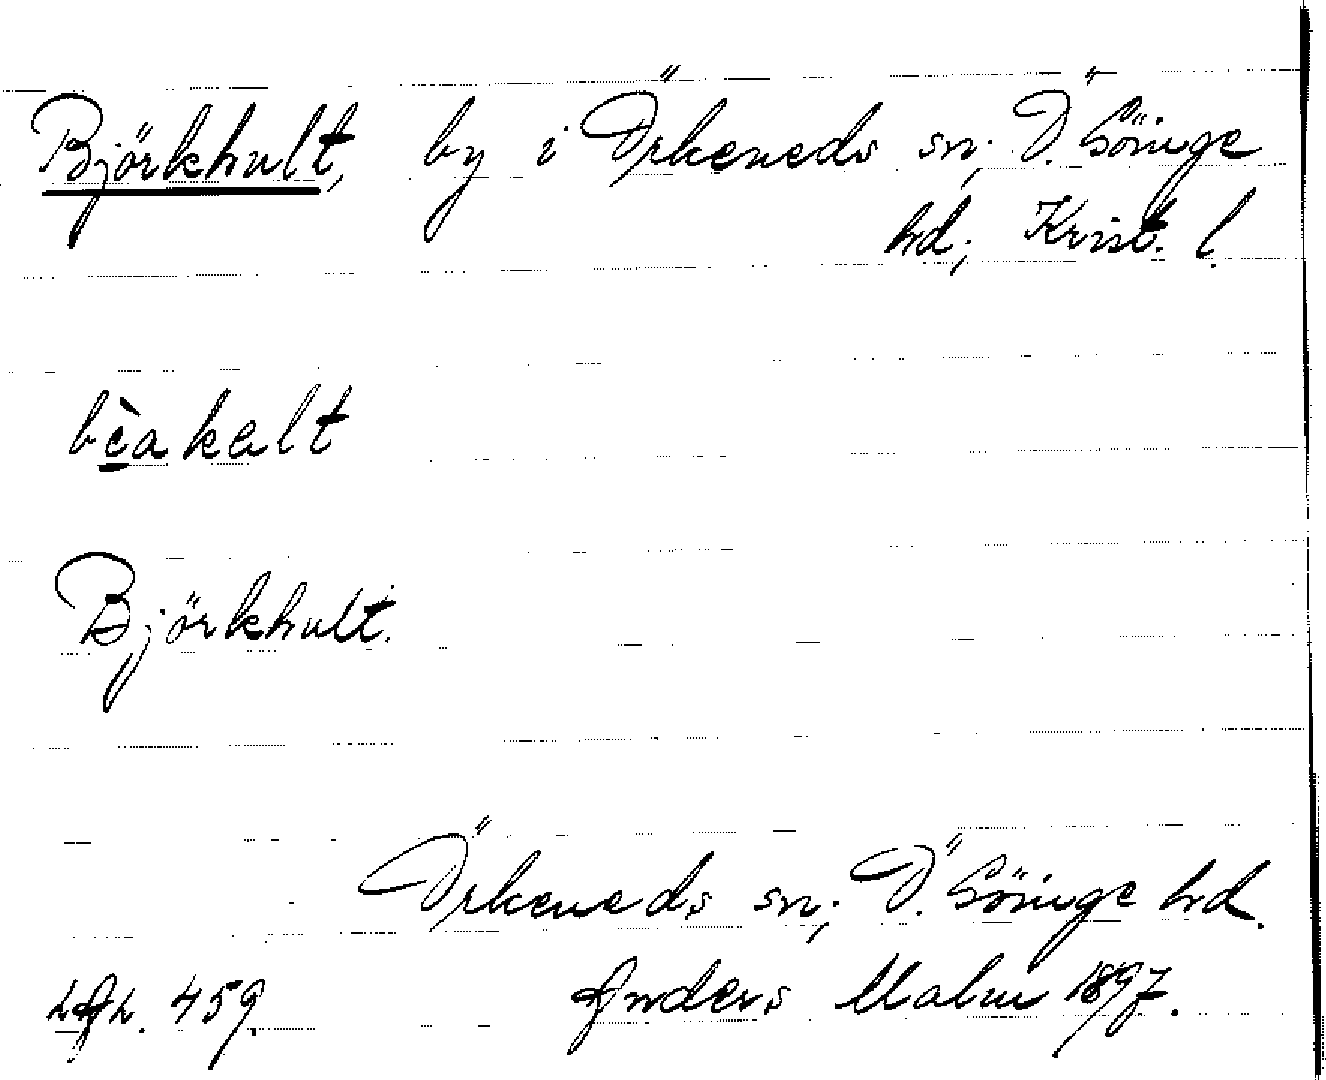 Björkhult, by i Örkeneds sn; Ö. Göinge
hd; Krist. l.
bèakalt
Björkhult.
Örkeneds sn; Ö. Göinge hd.
459 Anders Malm 1897.